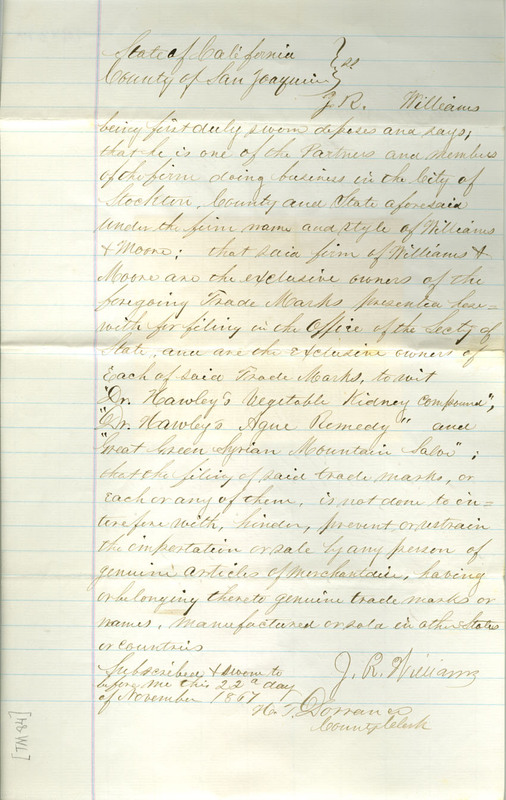 State of California } ss
County of San Joaquin
J. R. Williams
being first duly sworn deposes and says,
that he is one of the Partners and members
of the firm doing business in the City of
Stockton, County and State aforesaid
under the firm name and style of Williams
& Moore; that said firm of Williams &
Moore are the exclusive owners of the
foregoing Trade Marks presented here=
with for filing in the Office of the Secty of
State, and are the exclusive owners of
Each of said Trade Marks, to wit
"Dr. Hawley's Vegetable Kidney Compound",
"Dr. Hawley's Ague Remedy" and
"Great Green Syrian Mountain Salve";
that the filing of said trade marks, or
Each or any of them, is not done to in=
terefere with, hinder, prevent or restrain
the importation or sale by any person of
genuine articles of merchandise, having
or belonging thereto genuine trade marks or
names, manufactured or sold in other States
or countries
Subscribed & sworn to
before me this 22d day
of November 1867
J. R. Williams
H. T. Dorrance
County Clerk